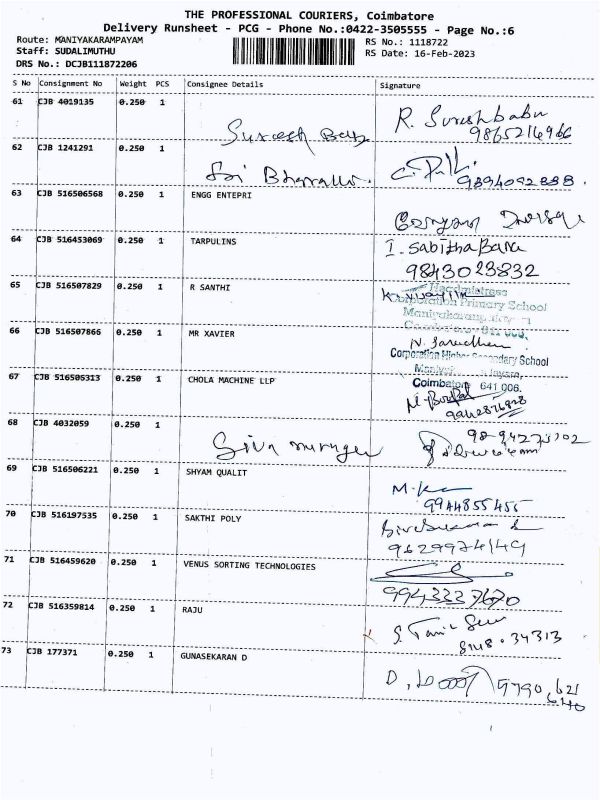 THE PROFESSIONAL COURIERS, Coimbatore
Delivery Runsheet - PCG - Phone No.:0422-3505555 - Page No.:6
Route: MANIYAKARAMPAYAM
RS No.: 1118722
Staff: SUDALIMUTHU
RS Date: 16-Feb-2023
DRS No.: DCJB111872206
S No Consignment No Weight PCS Consignee Details Signature
61 CJB 4019135 0.250 1 Suresh R. Sureshbabu
9865214966
62 CJB 1241291 0.250 1 Sri
9894092888.
63 CJB 516506568 0.250 1 ENGG ENTEPRI
64 CJB 516453069 0.250 1 TARPULINS I. Sabitha Banu
9843023832
65 CJB 516507829 0.250 1 R SANTHI
Headmistress
Corporation Primary School
66 CJB 516507866 0.250 1 MR XAVIER
Corporation Higher Secondary School
67 CJB 516505313 0.250 1 CHOLA MACHINE LLP
Coimbatore 641 006.
68 CJB 4032059 0.250 1 Siva
69 CJB 516506221 0.250 1 SHYAM QUALIT
9944855455
70 CJB 516197535 0.250 1 SAKTHI POLY
9629974149
71 CJB 516459620 0.250 1 VENUS SORTING TECHNOLOGIES
9943337670
72 CJB 516359814 0.250 1 RAJU
73 CJB 177371 0.250 1 GUNASEKARAN D